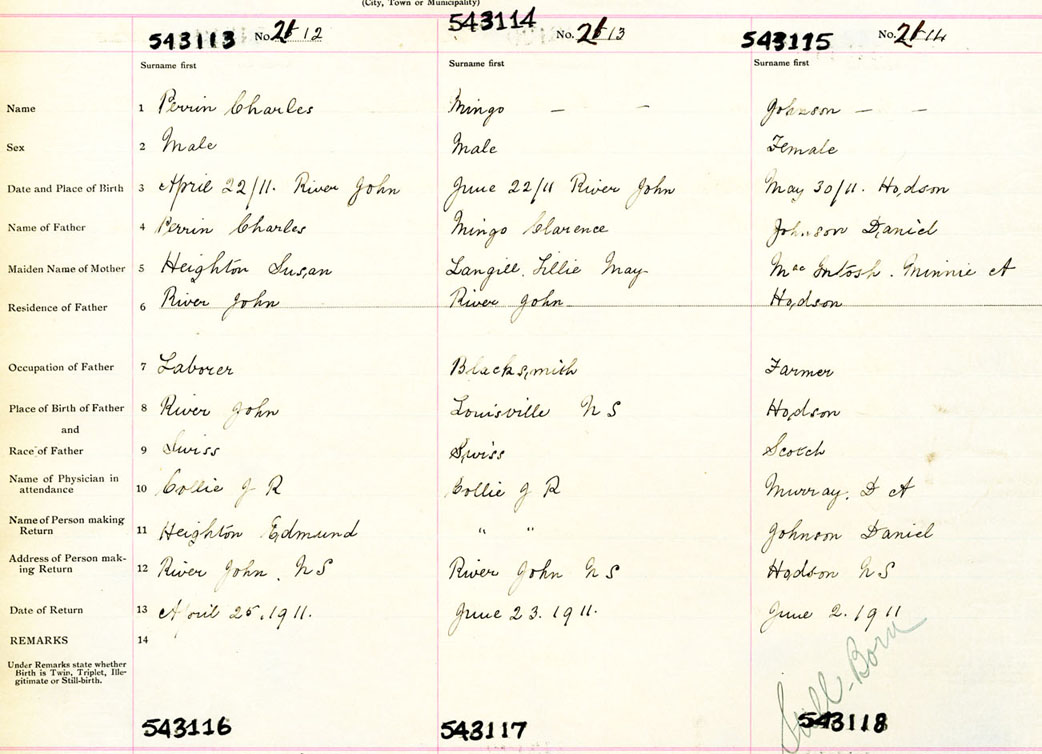 (City, Town or Municipality)
543113 No. 2612 543114 No. 2613 543115 No. 2614
Surname first Surname first Surname first
Name 1 Perrin Charles Mingo — — Johnson — —
Sex 2 Male Male Female
Date and Place of Birth 3 April 22/11. River John June 22/11 River John May 30/11. Hodson
Name of Father 4 Perrin Charles Mingo Clarence Johnson Daniel
Maiden Name of Mother 5 Heighton Susan Langill, Lillie May Mac Intosh. Minnie A
Residence of Father 6 River John River John Hodson
Occupation of Father 7 Laborer Blacksmith Farmer
Place of Birth of Father 8 River John Louisville N S Hodson
and
Race of Father 9 Swiss Swiss Scotch
Name of Physician in
attendance 10 Collie J R Collie J R Murray, D A
Name of Person making
Return 11 Heighton Edmund " " Johnson Daniel
Address of Person mak-
ing Return 12 River John, N S River John N S Hodson N S
Date of Return 13 April 25, 1911. June 23. 1911. June 2. 1911
REMARKS 14
Under Remarks state whether
Birth is Twin, Triplet, Ille-
gitimate or Still-birth.
Still-Born
543116 543117 543118